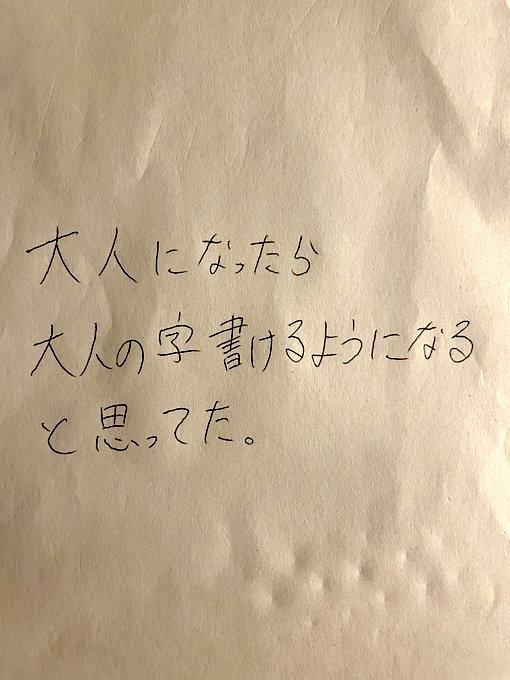 大人になったら
大人の字書けるようになる
と思ってた。